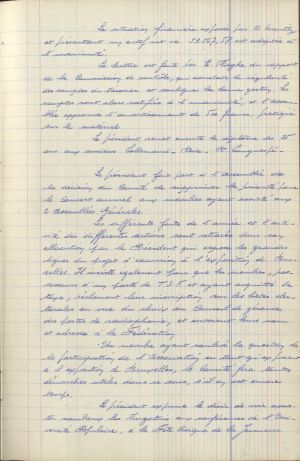 La situation financière exposée par
et présentant un actif net de 53.567,58 est adoptée à
l'unanimité.
La lecture est faite par le rapport
de la Commission de contrôle, qui constate la régularité
des comptes du trésorier et souligne la bonne gestion. Les
comptes sont alors ratifiés à l'unanimité, et l'assem-
blée approuve l'amortissement de 500 francs pratiqué
sur le matériel.
Le président remet ensuite le diplôme de
ans aux anciens
Le président fait part à l'assemblée de
la décision du Comité de supprimer la priorité pour
le concert annuel aux membres ayant assisté aux
2 Assemblées Générales.
Les différents faits de l'année et l'acti-
vité des différentes sections sont retracés dans son
allocution par le Président qui expose les grandes
lignes du projet d'excursion à l'exposition de Bru-
xelles. Il insiste également pour que les membres, pos-
sesseurs d'un poste de T.S.F. et ayant acquitté la
taxe, réclament leur inscription sur les listes élec-
torales en vue du choix du Conseil de gérance
des postes de radiophonie, et envoient leurs nom
et adresse à la Fédération.
Un membre ayant soulevé la question de
la participation de l'Association en tant qu'exposant
à l'exposition de Bruxelles, le Comité fera toutes
démarches utiles dans ce sens, s'il en est encore
temps.
Le président exprime le désir de voir assis-
ter nombreux les aux conférences de l'Uni-
versité Populaire, à la Fête Civique de la Jeunesse